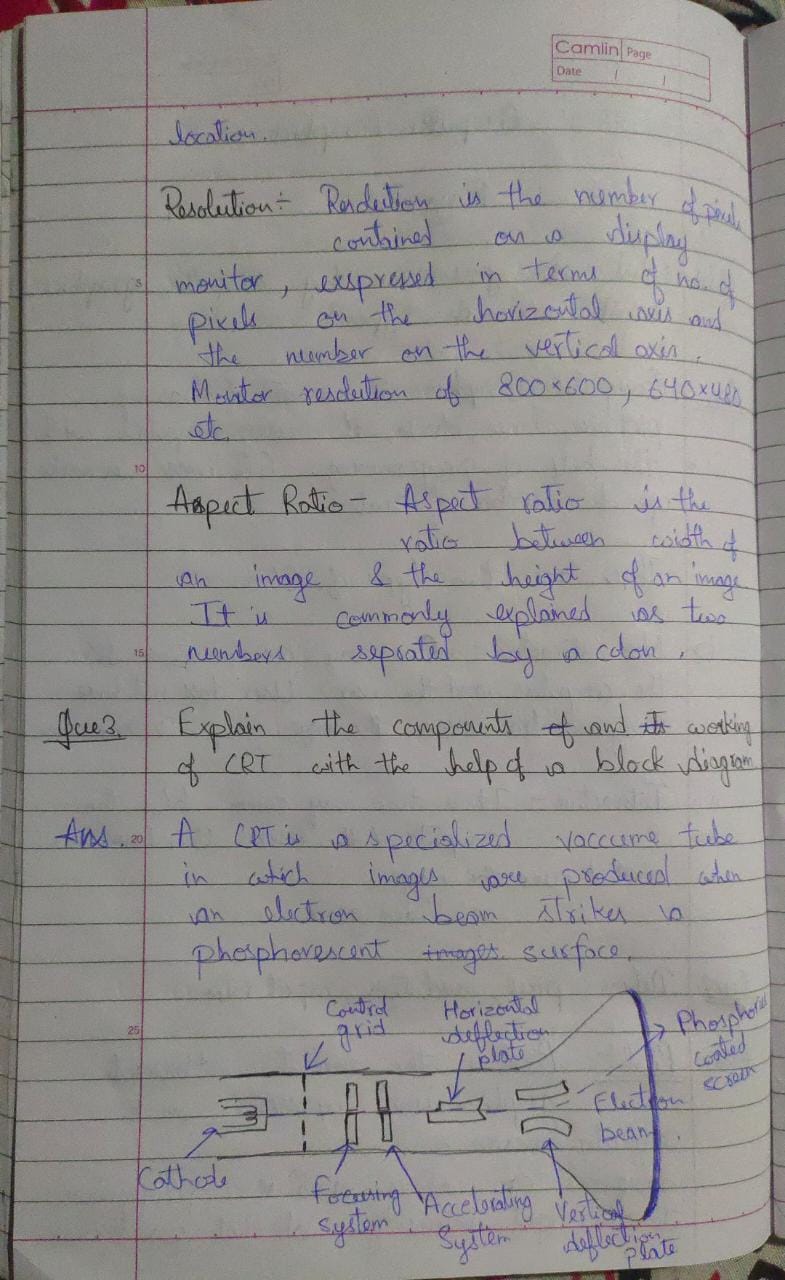 Camlin Page
Date / /
location.
Resolution:- Resolution is the number of pixels
contained on a display
5
monitor, exspressed in terms of no. of
pixels on the horizontal axis and
the number on the vertical axis.
Monitor resolution of 800×600, 640×480
etc.
10
Aspect Ratio - Aspect ratio is the
ratio between width of
an image & the height of an image
It is commonly explained as two
15
numbers seprated by a colon.
Que 3. Explain the components of and its working
of CRT with the help of a block diagram
Ans. 20 A CRT is a specialized vaccume tube
in which images are produced when
an electron beam strikes a
phosphorescent images. surface.
25
Control
grid
Horizontal
deflection
plate
Phosphorus
coated
screen
Electron
beam.
Cathode
Focusing
system
Accelerating
System
Vertical
deflection
plate